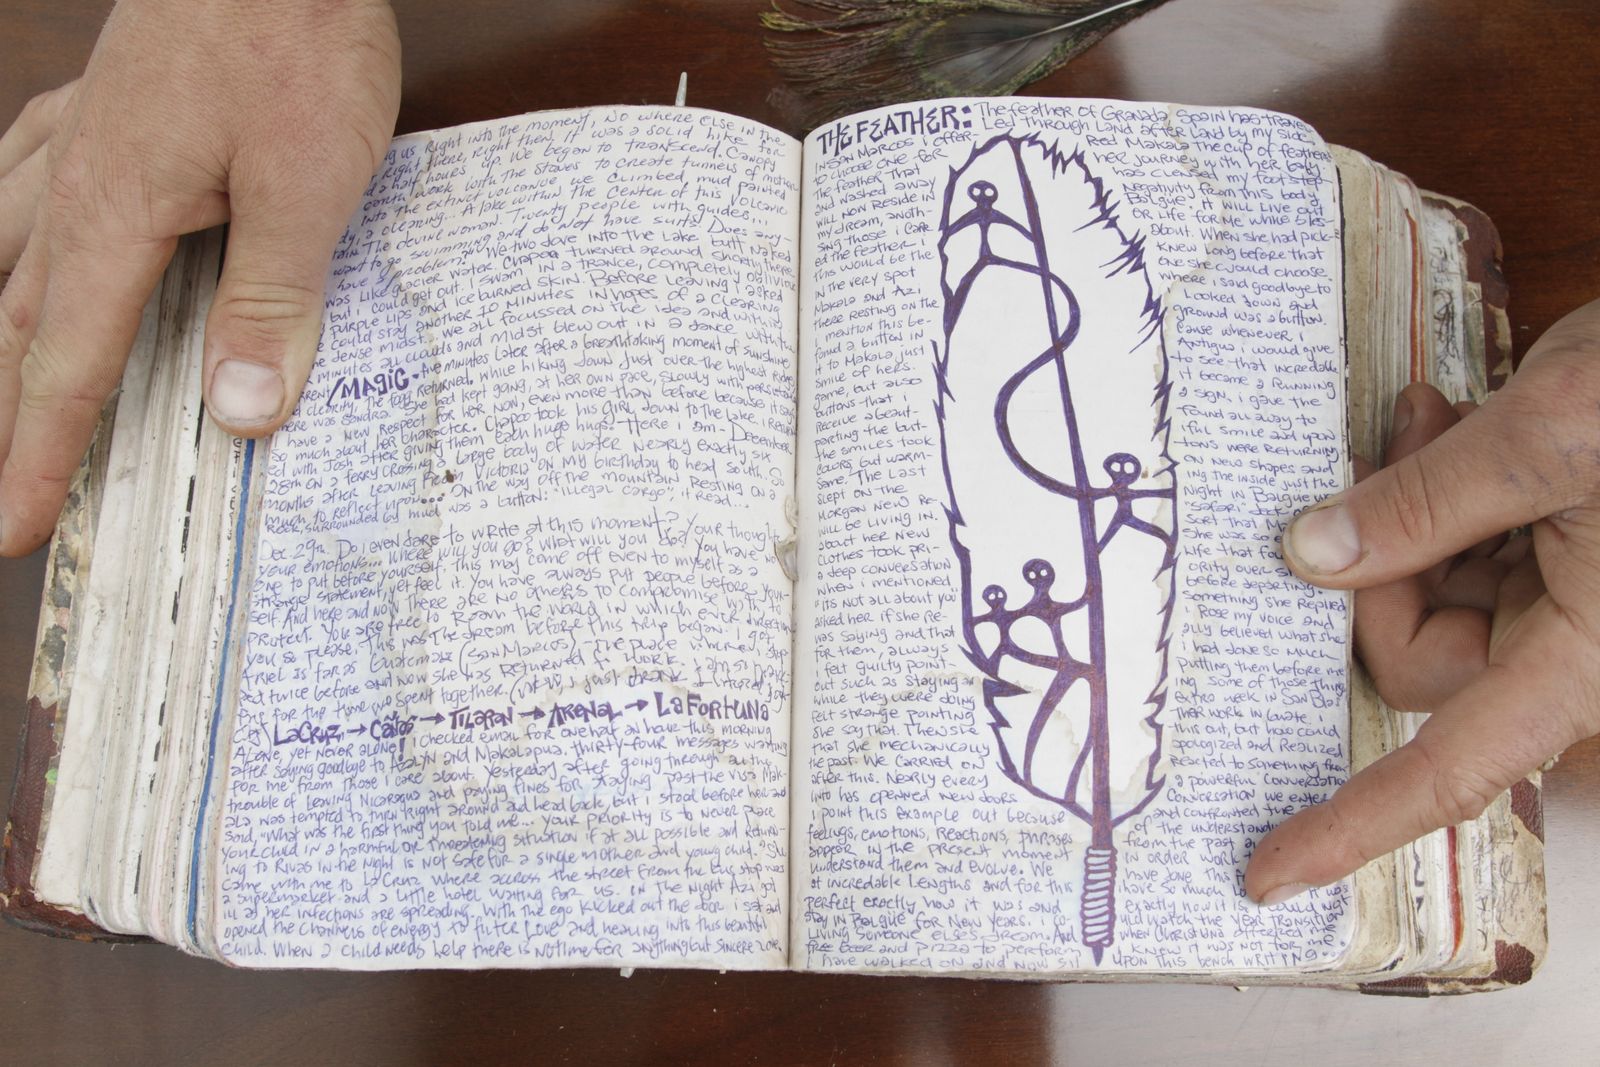 us Right into the moment. No where else in the
Right there, right then. It was a solid hike for
a half hours up. We began to transcend. Canopy
earth work with the staves to create tunnels of motion
into the extinct volcanoe we climbed mud painted
a cleaning... A lake within the center of this volcano
The devine woman. Twenty people with guides...
want to go swimming and do not have suits. Does any-
have a problem?" We two dove into the lake butt naked
was like glacier water. Chapoo turned around shortly there
but i could get out. I swam in a trance, completely oblivious
purple lips and ice burned skin. Before leaving i asked
we could stay another 10 minutes in hopes of a clearing
the dense midst. We all focussed on the idea and within
minutes all clouds and midst blew out in a dance with the
current /MAGIC. Five minutes later after a breathtaking moment of sunshine
and clearity, the fogg returned. While hiking down just over the highest ridge,
there was Sandra. She had kept going, at her own pace, slowly with persistence
I have a new respect for her now, even more than before because it says
so much about her character. Chapoo took his girl down to the lake. I return-
ed with Josh after giving them each huge hugs. Here i am - December
28th on a ferry crossing a large body of water nearly exactly six
months after leaving from Victoria on my birthday to head south. So
much to reflect upon... On the way off the mountain resting on a
rock, surrounded by mud was a button: "illegal cargo", it read...
Dec. 29th. Do i even dare to write at this moment? Your thoughts
your emotions... where will you go? what will you do? You have no
one to put before yourself, this may come off even to myself as a
strange statement, yet feel it. You have always put people before your-
self. And here and now there are no others to compromise with, to
protect. You are free to roam the world in which ever direction
you so please. This was the dream before this trip began. I got
Ariel is far as Guatemala (San Marcos)
twice before and now she was returned to work. I am so
for the time we spent together.
LaCruz → Cañas → Tilaran → Arenal → La Fortuna
Alone, yet never alone! I checked email for one half an hour this morning
after saying goodbye to Azalyn and Makalapua. thirty-four messages waiting
for me from those i care about. Yesterday after going through all the
trouble of leaving Nicaragua and paying fines for staying past the visa Mak-
ala was tempted to turn right around and head back, but i stood before her and
said, "What was the first thing you told me... your priority is to never place
your child in a harmful or threatening situation if at all possible and return-
ing to Rivas in the night is not safe for a single mother and young child." She
came with me to La Cruz where across the street from the bus stop was
a supermarket and a little hotel waiting for us. In the night Azi got
ill as her infections are spreading. With the ego kicked out the door i sat and
opened the channels of energy to filter love and healing into this beautiful
child. When a child needs help there is no time for anything but sincere love.
THE FEATHER: The feather of Granada Spain has trave-
led through land after land by my side.
In San Marcos i offer- Red Makala the cup of feathers
to choose one for her journey with her baby.
the feather that has clensed my foot step
and washed away negativity from this body
will now reside in Balgüe. It will live out
my dream, anoth- or life for me while bles-
sing those i care about. When she had pick-
ed the feather i knew long before that
this would be the one she would choose.
In the very spot where i said goodbye to
Makala and Azi Looked down and
there resting on the ground was a button.
I mention this be- cause whenever i
found a button in Antigua i would give
it to Makala just to see that incredable
smile of hers. it became a running
game, but also a sign. i gave the
buttons that i found all away to
receive a beaut- iful smile and upon
parting the but- tons were returning
the smiles took on new shapes and
colors, but warm- ing the inside just the
same. The last night in Balgüe we
slept on the "safari" deck of
Morgan new re-
will be living in. She was so
about her new life that
clothes took pri- ority over
a deep conversation before departing.
when i mentioned something she replied
"its not all about you" Rose my voice and
asked her if she re- ally believed what she
was saying and that i had done so much
for them, always putting them before me
i felt guilty point- ing some of those things
out such as staying an extra week in San Blas
while they were doing their work in Guate. i
felt strange pointing this out, but how could
she say that. Then she apologized and realized
that she mechanically reacted to something from
the past. We carried on a powerful conversation
after this. Nearly every conversation we enter
into has opened new doors and confronted the
I point this example out because of the understanding
feelings, emotions, reactions, phrases from the past
appear in the present moment in order work
understand them and evolve. We have done this
at incredable lengths and for this i have so much
perfect exactly how it was and exactly how it is. It was
stay in Balgüe for New Years. I could not
living someone elses dream. And would watch the year transition
free beer and pizza to perform when Christina offered me
I have walked on and now sit I knew it was not for me.
upon this bench writing...